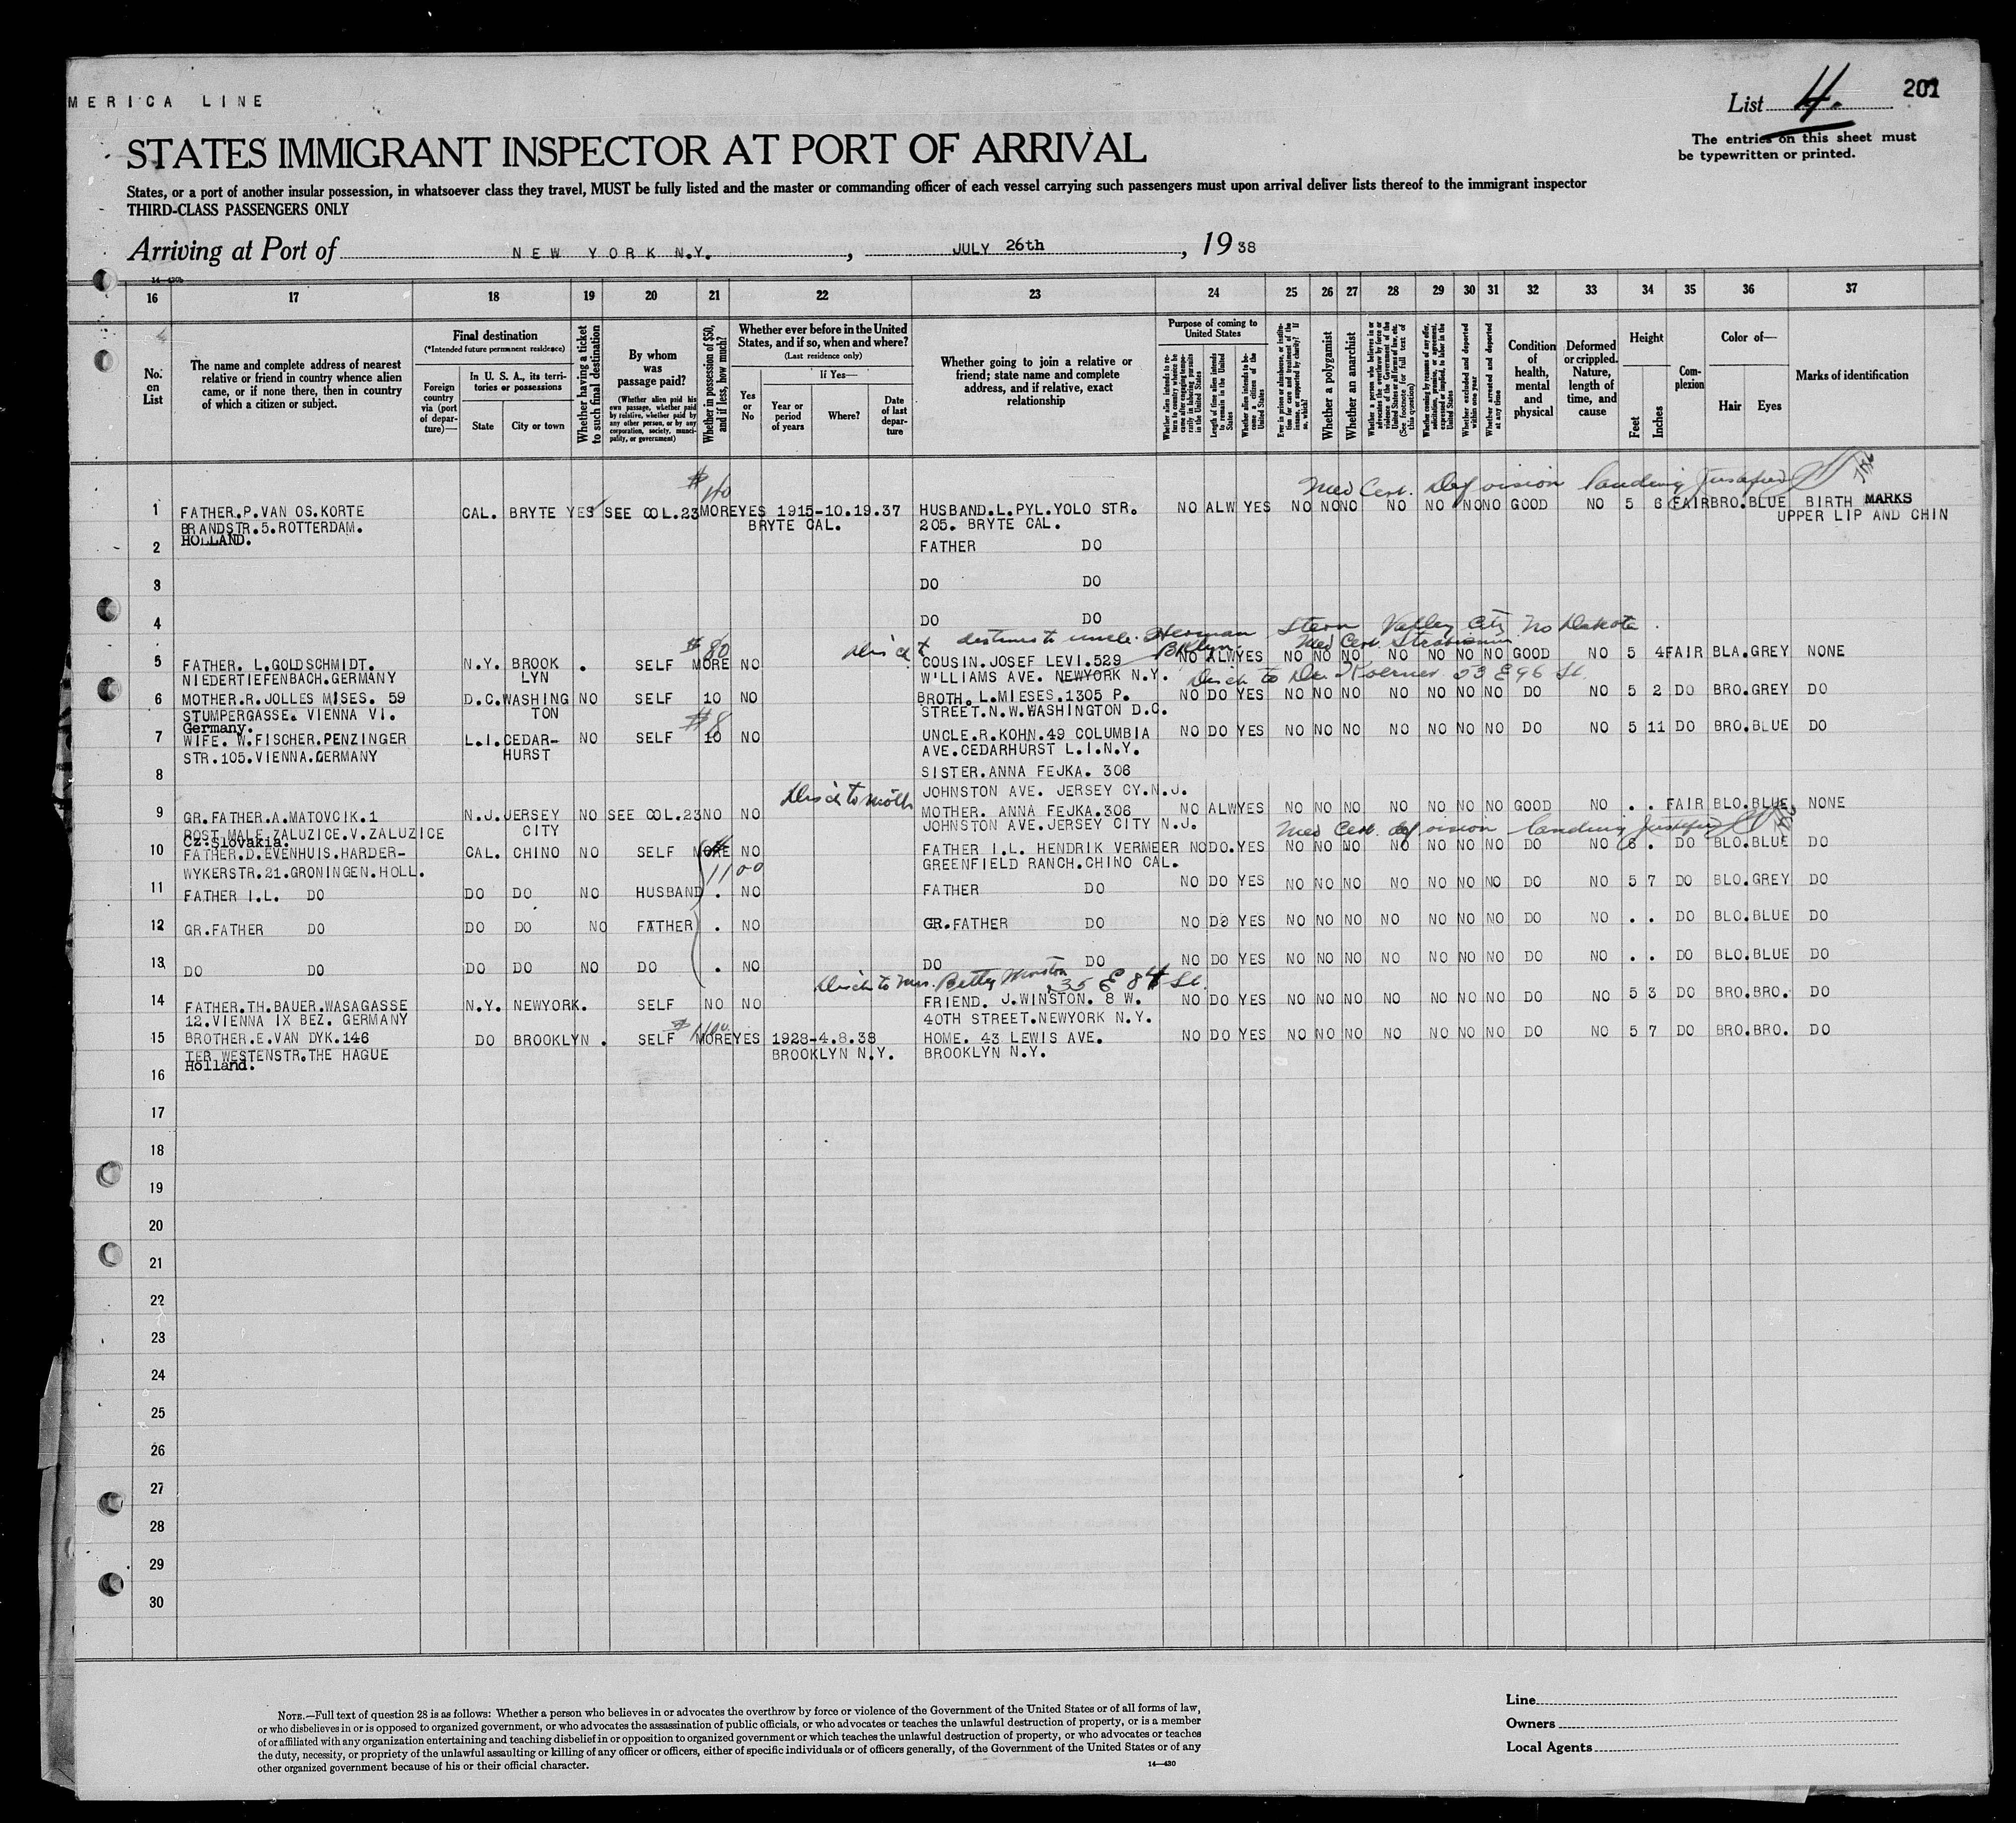 MERICA LINE
List 4. 201
The entries on this sheet must
be typewritten or printed.
STATES IMMIGRANT INSPECTOR AT PORT OF ARRIVAL
States, or a port of another insular possession, in whatsoever class they travel, MUST be fully listed and the master or commanding officer of each vessel carrying such passengers must upon arrival deliver lists thereof to the immigrant inspector
THIRD-CLASS PASSENGERS ONLY
Arriving at Port of NEW YORK N.Y. , JULY 26th , 1938
14-430b
16 17 18 19 20 21 22 23 24 25 26 27 28 29 30 31 32 33 34 35 36 37
No. on List
The name and complete address of nearest relative or friend in country whence alien came, or if none there, then in country of which a citizen or subject.
Final destination
(*Intended future permanent residence)
Foreign country via (port of departure)—
In U. S. A., its territories or possessions
State
City or town
Whether having a ticket to such final destination
By whom was passage paid?
(Whether alien paid his own passage, whether paid by relative, whether paid by any other person, or by any corporation, society, municipality, or government)
Whether in possession of $50, and if less, how much?
Whether ever before in the United States, and if so, when and where?
(Last residence only)
Yes or No
If Yes—
Year or period of years
Where?
Date of last departure
Whether going to join a relative or friend; state name and complete address, and if relative, exact relationship
Purpose of coming to United States
Whether alien intends to return to country whence he came after engaging temporarily in laboring pursuits in the United States
Length of time alien intends to remain in the United States
Whether alien intends to become a citizen of the United States
Ever in prison or almshouse, or institution for care and treatment of the insane, or supported by charity? If so, which?
Whether a polygamist
Whether an anarchist
Whether a person who believes in or advocates the overthrow by force or violence of the Government of the United States or all forms of law, etc. (See footnote for full text of this question)
Whether coming by reason of any offer, solicitation, promise, or agreement, expressed or implied, to labor in the United States
Whether excluded and deported within one year
Whether arrested and deported at any time
Condition of health, mental and physical
Deformed or crippled. Nature, length of time, and cause
Height
Feet
Inches
Complexion
Color of—
Hair
Eyes
Marks of identification
$ 40 Med Cert. Def vision landing justified
1 FATHER.P.VAN OS.KORTE CAL. BRYTE YES SEE COL.23 MORE YES 1915-10.19.37 HUSBAND.L.PYL.YOLO STR. NO ALW YES NO NO NO NO NO NO NO GOOD NO 5 6 FAIR BRO.BLUE BIRTH MARKS
BRANDSTR.5.ROTTERDAM. BRYTE CAL. 205. BRYTE CAL. UPPER LIP AND CHIN
HOLLAND.
2 FATHER DO
3 DO DO
4 DO DO
destined to uncle. Herman Stern Valley City No Dakota
$ 80 Bklyn. Med Cert.
5 FATHER. L.GOLDSCHMIDT. N.Y. BROOK . SELF MORE NO COUSIN.JOSEF LEVI.529 NO ALW YES NO NO NO NO NO NO NO GOOD NO 5 4 FAIR BLA.GREY NONE
NIEDERTIEFENBACH.GERMANY LYN W'LLIAMS AVE. NEWYORK N.Y. Disch to Dr. Koerner 53 E 96 St.
6 MOTHER.R.JOLLES MISES. 59 D.C. WASHING NO SELF 10 NO BROTH. L.MIESES.1305 P. NO DO YES NO NO NO NO NO NO NO DO NO 5 2 DO BRO.GREY DO
STUMPERGASSE. VIENNA VI. TON STREET.N.W.WASHINGTON D.C.
Germany. $8
7 WIFE. W.FISCHER.PENZINGER L.I. CEDAR- NO SELF 10 NO UNCLE.R.KOHN.49 COLUMBIA NO DO YES NO NO NO NO NO NO NO DO NO 5 11 DO BRO.BLUE DO
STR.105.VIENNA.GERMANY HURST AVE.CEDARHURST L.I.N.Y.
8 SISTER.ANNA FEJKA. 306
JOHNSTON AVE. JERSEY CY.N.J.
Disch to moth
9 GR.FATHER.A.MATOVCIK.1 N.J. JERSEY NO SEE COL.23 NO NO MOTHER. ANNA FEJKA.306 NO ALW YES NO NO NO NO NO NO NO GOOD NO . . FAIR BLO.BLUE NONE
POST MALE ZALUZICE.V.ZALUZICE CITY JOHNSTON AVE.JERSEY CITY N.J. Med Cert. def vision landing justified
Cz.Slovakia.
10 FATHER.D.EVENHUIS.HARDER- CAL. CHINO NO SELF MORE NO FATHER I.L. HENDRIK VERMEER NO DO. YES NO NO NO NO NO NO NO DO NO 6 . DO BLO.BLUE DO
WYKERSTR.21.GRONINGEN.HOLL. 1100 GREENFIELD RANCH.CHINO CAL.
11 FATHER I.L. DO DO DO NO HUSBAND . NO FATHER DO NO DO YES NO NO NO NO NO NO NO DO NO 5 7 DO BLO.GREY DO
12 GR.FATHER DO DO DO NO FATHER . NO GR.FATHER DO NO DO YES NO NO NO NO NO NO NO DO NO . . DO BLO.BLUE DO
13 DO DO DO DO NO DO . NO DO DO NO DO YES NO NO NO NO NO NO NO DO NO . . DO BLO.BLUE DO
Disch to Mrs. Betty Winston 35 E 84 St.
14 FATHER.TH.BAUER.WASAGASSE N.Y. NEWYORK. SELF NO NO FRIEND. J.WINSTON. 8 W. NO DO YES NO NO NO NO NO NO NO DO NO 5 3 DO BRO.BRO. DO
12.VIENNA IX BEZ. GERMANY 40TH STREET.NEWYORK N.Y.
15 BROTHER.E.VAN DYK.146 DO BROOKLYN . SELF MORE YES 1928-4.8.38 HOME. 43 LEWIS AVE. NO DO YES NO NO NO NO NO NO NO DO NO 5 7 DO BRO.BRO. DO
TER WESTENSTR.THE HAGUE BROOKLYN N.Y. BROOKLYN N.Y.
Holland.
16
17
18
19
20
21
22
23
24
25
26
27
28
29
30
NOTE.—Full text of question 28 is as follows: Whether a person who believes in or advocates the overthrow by force or violence of the Government of the United States or of all forms of law,
or who disbelieves in or is opposed to organized government, or who advocates the assassination of public officials, or who advocates or teaches the unlawful destruction of property, or is a member
of or affiliated with any organization entertaining and teaching disbelief in or opposition to organized government or which teaches the unlawful destruction of property, or who advocates or teaches
the duty, necessity, or propriety of the unlawful assaulting or killing of any officer or officers, either of specific individuals or of officers generally, of the Government of the United States or of any
other organized government because of his or their official character.
14—430
Line
Owners
Local Agents